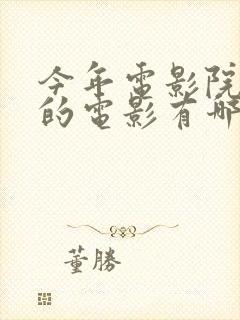 今年電影院
的電影有哪
董勝